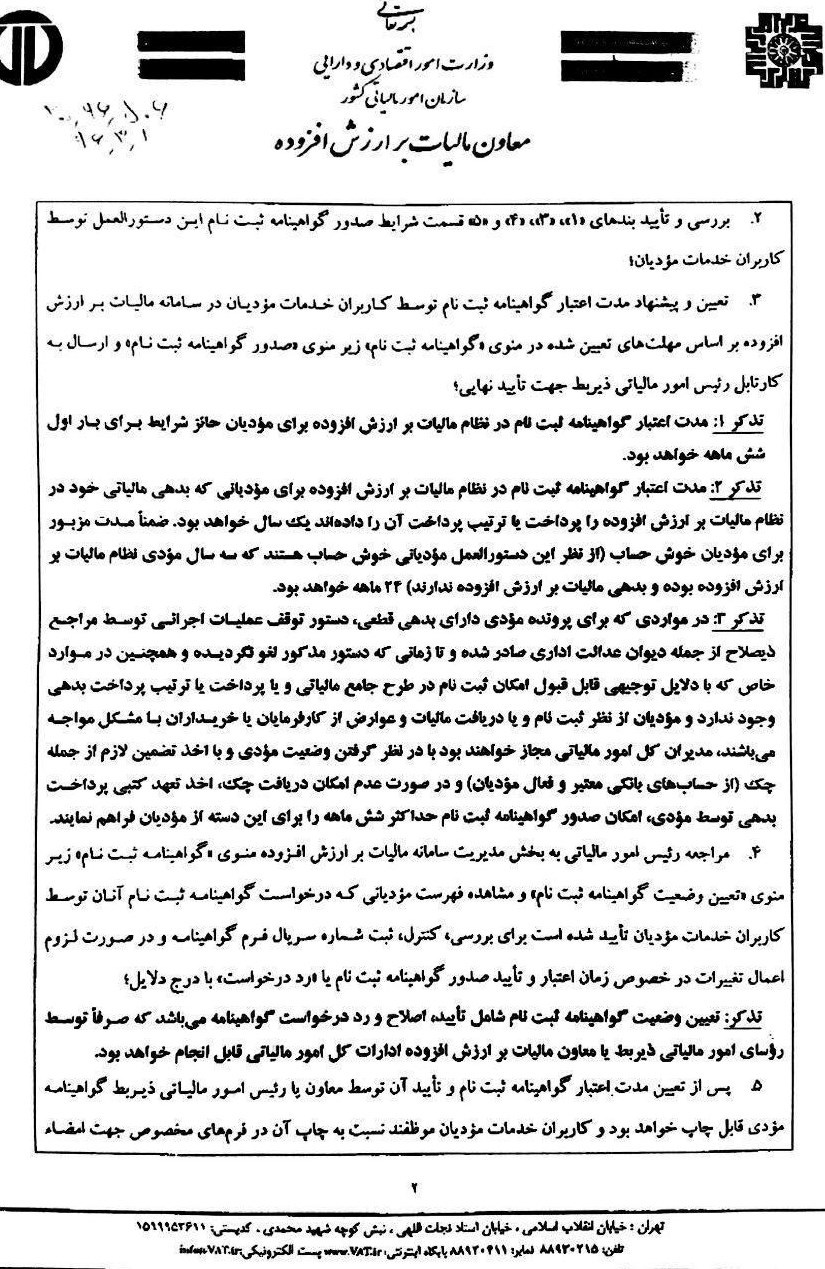 وزارت امور اقتصادی و دارایی
سازمان امور مالیاتی کشور
معاون مالیات بر ارزش افزوده
۲. بررسی و تأیید بندهای «۱»، «۳»، «۴» و «۵» قسمت شرایط صدور گواهینامه ثبت نام این دستورالعمل توسط
کاربران خدمات مؤدیان؛
۳. تعیین و پیشنهاد مدت اعتبار گواهینامه ثبت نام توسط کاربران خدمات مؤدیان در سامانه مالیات بر ارزش
افزوده بر اساس مهلت‌های تعیین شده در منوی «گواهینامه ثبت نام» زیر منوی «صدور گواهینامه ثبت نام» و ارسال به
کارتابل رئیس امور مالیاتی ذیربط جهت تأیید نهایی؛
تذکر ۱: مدت اعتبار گواهینامه ثبت نام در نظام مالیات بر ارزش افزوده برای مؤدیان حائز شرایط برای بار اول
شش ماهه خواهد بود.
تذکر ۲: مدت اعتبار گواهینامه ثبت نام در نظام مالیات بر ارزش افزوده برای مؤدیانی که بدهی مالیاتی خود در
نظام مالیات بر ارزش افزوده را پرداخت یا ترتیب پرداخت آن را داده‌اند یک سال خواهد بود. ضمناً مدت مزبور
برای مؤدیان خوش حساب (از نظر این دستورالعمل مؤدیانی خوش حساب هستند که سه سال مؤدی نظام مالیات بر
ارزش افزوده بوده و بدهی مالیات بر ارزش افزوده ندارند) ۲۴ ماهه خواهد بود.
تذکر ۳: در مواردی که برای پرونده مؤدی دارای بدهی قطعی، دستور توقف عملیات اجرائی توسط مراجع
ذیصلاح از جمله دیوان عدالت اداری صادر شده و تا زمانی که دستور مذکور لغو نگردیده و همچنین در موارد
خاص که با دلایل توجیهی قابل قبول امکان ثبت نام در طرح جامع مالیاتی و یا پرداخت یا ترتیب پرداخت بدهی
وجود ندارد و مؤدیان از نظر ثبت نام و یا دریافت مالیات و عوارض از کارفرمایان یا خریداران با مشکل مواجه
می‌باشند، مدیران کل امور مالیاتی مجاز خواهند بود با در نظر گرفتن وضعیت مؤدی و با اخذ تضمین لازم از جمله
چک (از حساب‌های بانکی معتبر و فعال مؤدیان) و در صورت عدم امکان دریافت چک، اخذ تعهد کتبی پرداخت
بدهی توسط مؤدی، امکان صدور گواهینامه ثبت نام حداکثر شش ماهه را برای این دسته از مؤدیان فراهم نمایند.
۴. مراجعه رئیس امور مالیاتی به بخش مدیریت سامانه مالیات بر ارزش افزوده منوی «گواهینامه ثبت نام» زیر
منوی «تعیین وضعیت گواهینامه ثبت نام» و مشاهده فهرست مؤدیانی که درخواست گواهینامه ثبت نام آنان توسط
کاربران خدمات مؤدیان تأیید شده است برای بررسی، کنترل، ثبت شماره سریال فرم گواهینامه و در صورت لزوم
اعمال تغییرات در خصوص زمان اعتبار و تأیید صدور گواهینامه ثبت نام یا «رد درخواست» با درج دلایل؛
تذکر: تعیین وضعیت گواهینامه ثبت نام شامل تأیید، اصلاح و رد درخواست گواهینامه می‌باشد که صرفاً توسط
رؤسای امور مالیاتی ذیربط یا معاون مالیات بر ارزش افزوده ادارات کل امور مالیاتی قابل انجام خواهد بود.
۵. پس از تعیین مدت اعتبار گواهینامه ثبت نام و تأیید آن توسط معاون یا رئیس امور مالیاتی ذیربط گواهینامه
مؤدی قابل چاپ خواهد بود و کاربران خدمات مؤدیان موظفند نسبت به چاپ آن در فرم‌های مخصوص جهت امضاء
۲
تهران : خیابان انقلاب اسلامی ، خیابان استاد نجات اللهی ، نبش کوچه شهید محمدی ، کدپستی: ۱۵۹۹۹۵۳۶۱۱
تلفن: ۸۸۹۳۰۲۱۵ نمابر: ۸۸۹۲۰۶۱۱ پایگاه اینترنتی: www.VAT.ir پست الکترونیکی: